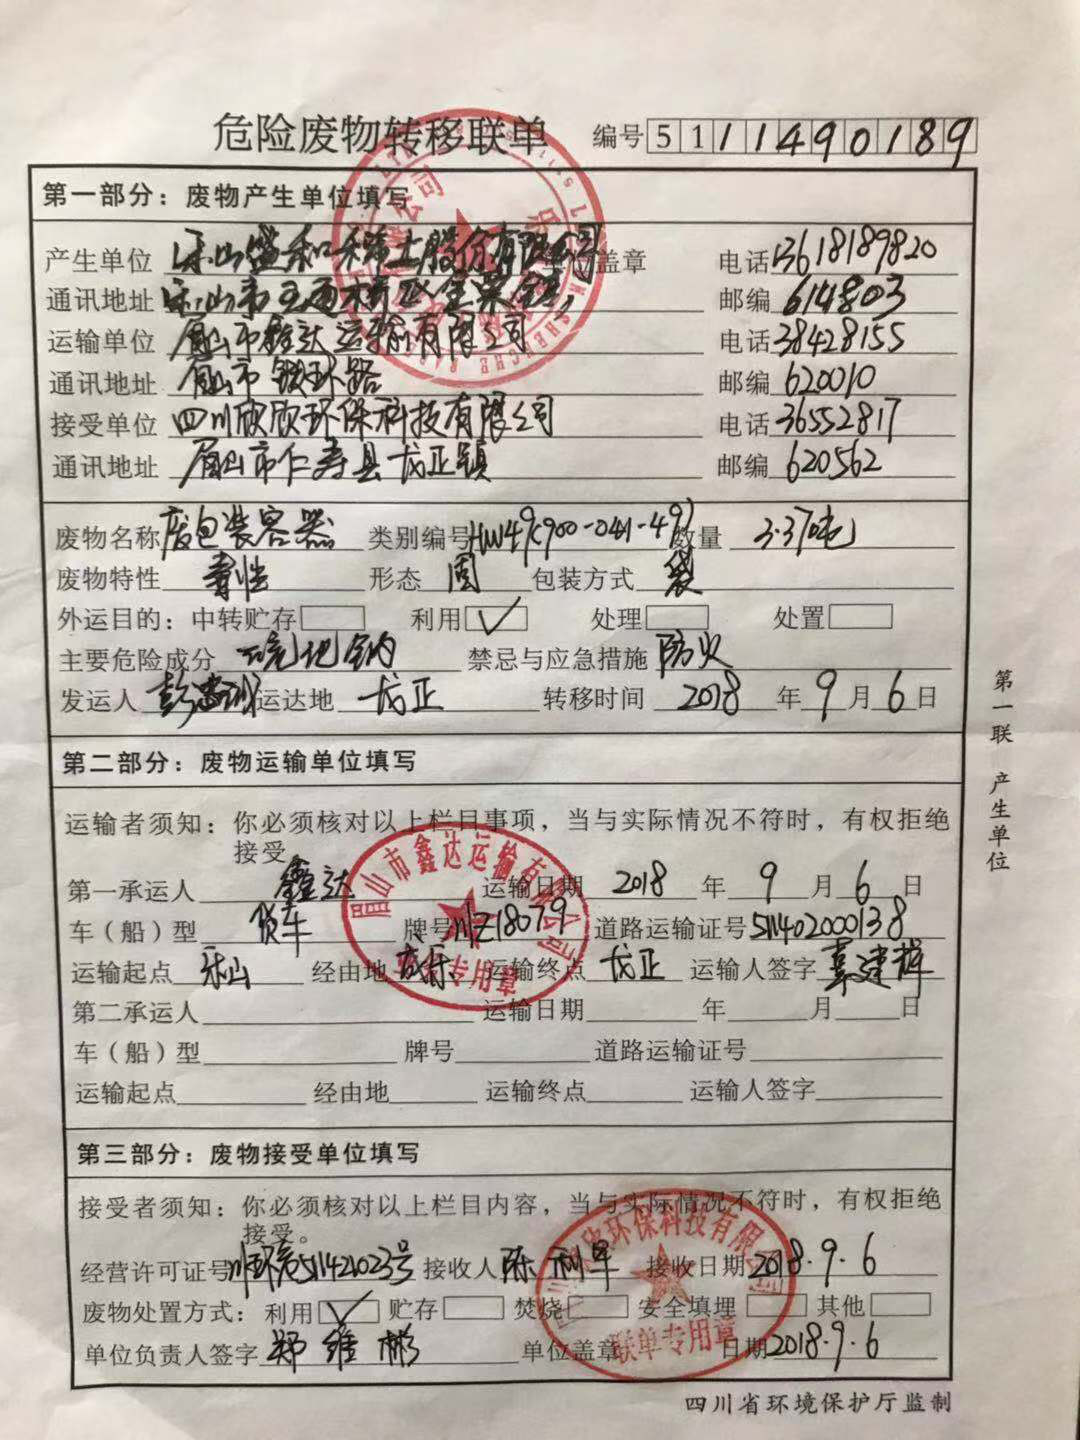 危险废物转移联单 编号 51111490189
第一部分：废物产生单位填写
产生单位 乐山盛和稀土股份有限公司 盖章 电话 13618189820
通讯地址 乐山市五通桥区金粟镇 邮编 614803
运输单位 眉山市鑫达运输有限公司 电话 38428155
通讯地址 眉山市 铁环路 邮编 620010
接受单位 四川欣欣环保科技有限公司 电话 36552817
通讯地址 眉山市仁寿县龙正镇 邮编 620562
废物名称 废包装容器 类别编号 HW49(900-041-49) 数量 3.370吨
废物特性 毒性 形态 固 包装方式 袋
外运目的：中转贮存 利用 ✓ 处理 处置
主要危险成分 硫化钠 禁忌与应急措施 防火
发运人 彭 运达地 龙正 转移时间 2018 年 9 月 6 日
第一联 产生单位
第二部分：废物运输单位填写
运输者须知：你必须核对以上栏目事项，当与实际情况不符时，有权拒绝
接受。
第一承运人 鑫达 运输日期 2018 年 9 月 6 日
车（船）型 货车 牌号 川Z18079 道路运输证号 511402000138
运输起点 乐山 经由地 运输终点 龙正 运输人签字 建辉
第二承运人 运输日期 年 月 日
车（船）型 牌号 道路运输证号
运输起点 经由地 运输终点 运输人签字
眉山市鑫达运输有限公司
专用章
第三部分：废物接受单位填写
接受者须知：你必须核对以上栏目内容，当与实际情况不符时，有权拒绝
接受。
经营许可证号 川环危511421023号 接收人 陈利军 接收日期 2018.9.6
废物处置方式：利用 ✓ 贮存 焚烧 安全填埋 其他
单位负责人签字 郑维彬 单位盖章 日期 2018.9.6
欣环保科技有限公司
联单专用章
四川省环境保护厅监制